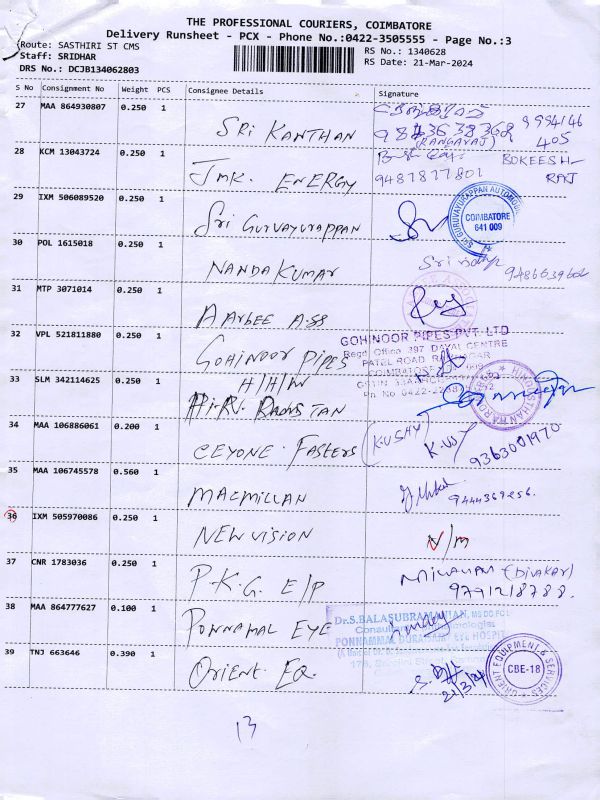 THE PROFESSIONAL COURIERS, COIMBATORE
Delivery Runsheet - PCX - Phone No.:0422-3505555 - Page No.:3
Route: SASTHIRI ST CMS
RS No.: 1340628
Staff: SRIDHAR
RS Date: 21-Mar-2024
DRS No.: DCJB134062803
S No Consignment No Weight PCS Consignee Details Signature
27 MAA 864930807 0.250 1
SRI KANTHAN
(RANGARAJ)
9994146
405
28 KCM 13043724 0.250 1
JMK. ENERGY
9487877801
BOKEESH
RAJ
29 IXM 506089520 0.250 1
Sri GURUVAYURAPPAN
SRI GURUVAYURAPPAN AUTOMOBILES
COIMBATORE
641 009
30 POL 1615018 0.250 1
NANDAKUMAR
31 MTP 3071014 0.250 1
AARBEE ASS
32 VPL 521811880 0.250 1
GOHINOOR PIPES
GOHINOOR PIPES PVT. LTD
Regd. Office 397 DAYAL CENTRE
PATEL ROAD, RAM NAGAR
COIMBATORE 641 009
33 SLM 342114625 0.250 1
H/H/W
34 MAA 106886061 0.200 1
CEYONE FASTERS
9363001970
35 MAA 106745578 0.560 1
MACMILLAN
9444369256.
36 IXM 505970086 0.250 1
NEW VISION
N/M
37 CNR 1783036 0.250 1
P.K.G. E/P
(DIVAKAR)
9791218788.
38 MAA 864777627 0.100 1
PONNAMAL EYE
Dr.S.BALASUBRAMANIAN, MS DO
39 TNJ 663646 0.390 1
ORIENT EQ.
21/3/24
ORIENT EQUIPMENT & SERVICES
CBE-18
13